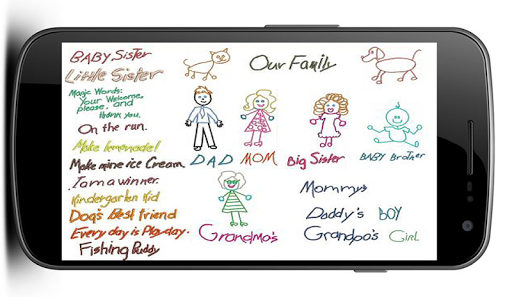 BABY Sister
Little Sister
Our Family
Magic Words:
Your Welcome,
please, and
thank you.
On the run.
Make lemonade!
Make mine ice Cream.
I am a winner.
Kindergarten Kid
Dog's Best friend
Every day is Playday.
Fishing Buddy
DAD
MOM
Big Sister
BABY Brother
Mommy's
Daddy's BOY
Grandma's
Grandpa's Girl